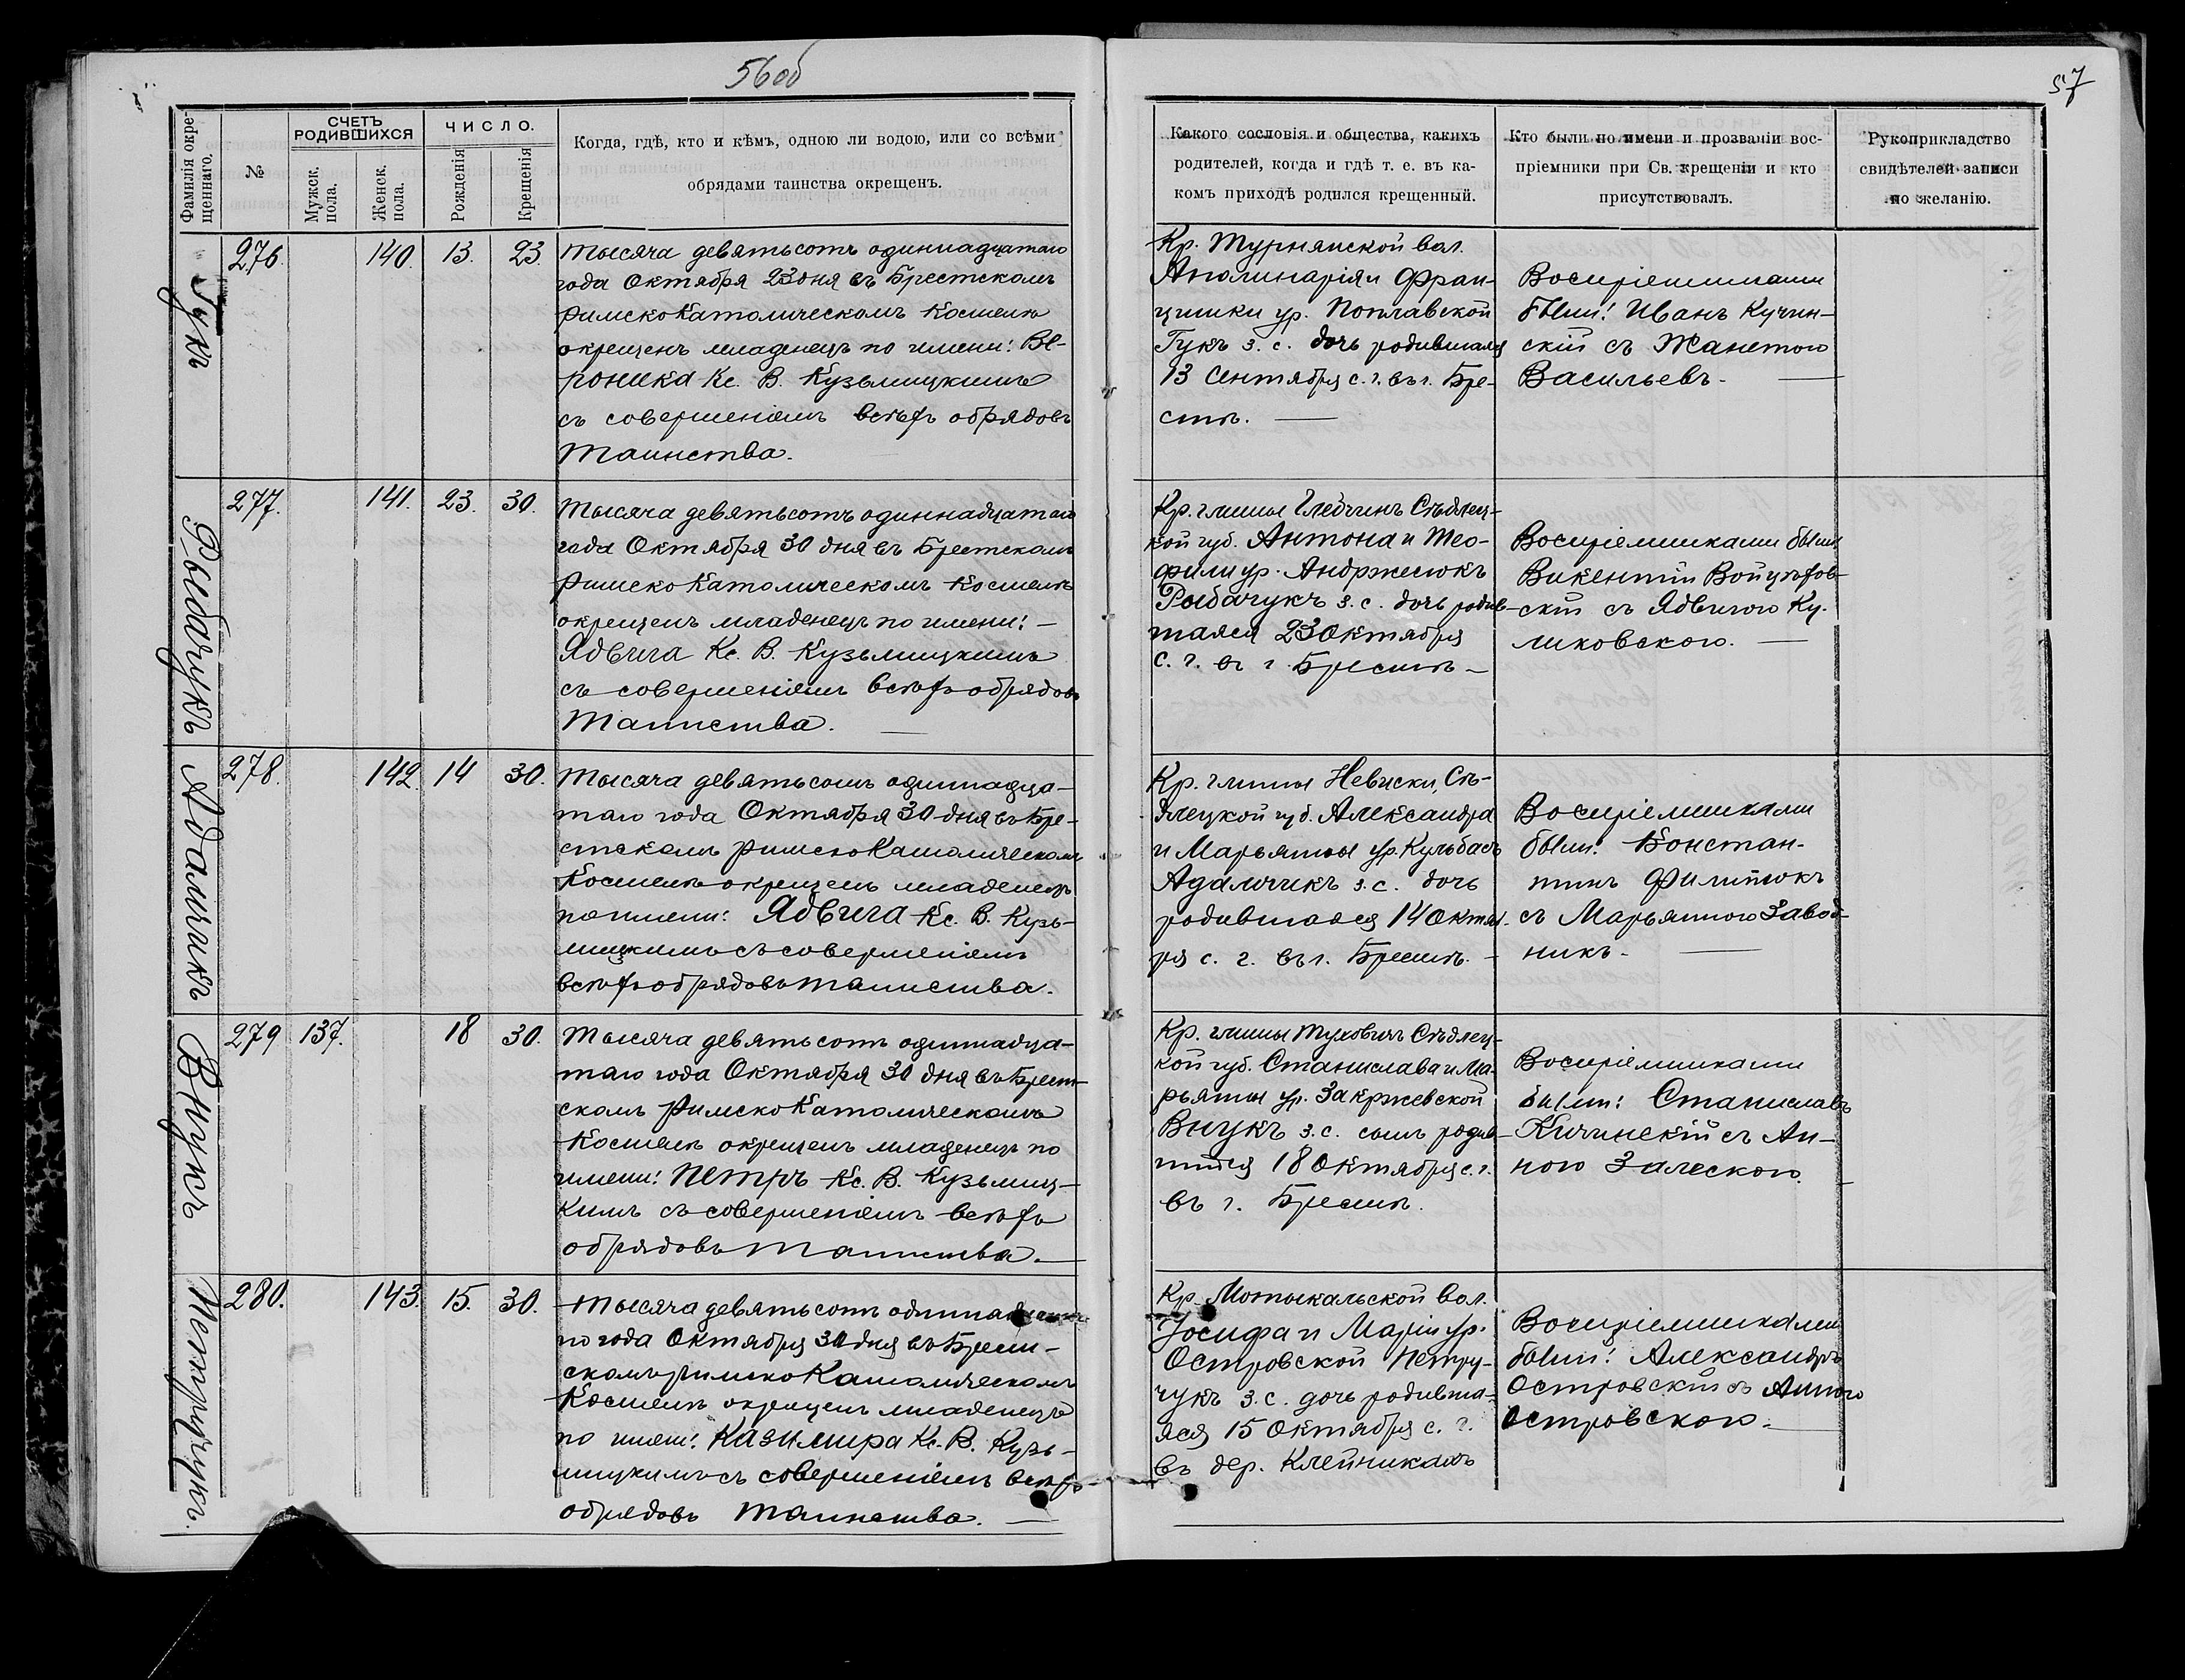 56об
57
Фамилія окре-
щеннаго.
№
СЧЕТЪ
РОДИВШИХСЯ
Мужск.
пола.
Женск.
пола.
ЧИСЛО.
Рожденія
Крещенія
Когда, гдѣ, кто и кѣмъ, одною ли водою, или со всѣми
обрядами таинства окрещенъ.
Какого сословія и общества, какихъ
родителей, когда и гдѣ т. е. въ ка-
комъ приходѣ родился крещенный.
Кто были по имени и прозваніи вос-
пріемники при Св. крещеніи и кто
присутствовалъ.
Рукоприкладство
свидѣтелей записи
по желанію.
Гукъ
276. 140. 13. 23.
Тысяча девятьсотъ одиннадцатаго
года Октября 23 дня въ Брестскомъ
римско Католическомъ Костелѣ
окрещенъ младенецъ по имени: Ве-
роника Кс. В. Кузьмицкимъ
съ совершеніемъ всѣхъ обрядовъ
Таинства.
Кр. Турнянской вол.
Аполинарія и Фран-
цишки ур. Поплавской
Гукъ з. с. дочь родившаяся
13 Сентября с. г. въ г. Бре-
стѣ.
Воспріемниками
были: Иванъ Кучин-
скій съ Жанетою
Васильевъ.
Рыбачукъ
277. 141. 23. 30.
Тысяча девятьсотъ одиннадцатаго
года Октября 30 дня въ Брестскомъ
Римско Католическомъ Костелѣ
окрещенъ младенецъ по имени: —
Ядвига Кс. В. Кузьмицкимъ
съ совершеніемъ всѣхъ обрядовъ
Таинства.
Кр. гмины Гледчинъ Сѣдлец-
кой губ. Антона и Тео-
фили ур. Анджеюкъ
Рыбачукъ з. с. дочь родив-
шаяся 23 Октября
с. г. въ г. Брестѣ —
Воспріемниками были
Викентій Войцѣхов-
скій съ Ядвигою Ку-
ликовскою.
Адамчикъ
278. 142. 14 30.
Тысяча девятьсотъ одиннадца-
таго года Октября 30 дня въ Бре-
стскомъ римско Католическомъ
Костелѣ окрещенъ младенецъ
по имени: Ядвига Кс. В. Кузь-
мицкимъ съ совершеніемъ
всѣхъ обрядовъ таинства.
Кр. гмины Невиски, Сѣ-
длецкой губ. Александра
и Марьянны ур. Кульбасъ
Адамчикъ з. с. дочь
родившаяся 14 Октяб-
ря с. г. въ г. Брестѣ. —
Воспріемниками
были: Констан-
тинъ Филипюкъ
съ Марьянною Завод-
никъ.
Внукъ
279 137. 18 30.
Тысяча девятьсотъ одиннадца-
таго года Октября 30 дня въ Брест-
скомъ Римско Католическомъ
Костелѣ окрещенъ младенецъ по
имени: Петръ Кс. В. Кузьмиц-
кимъ съ совершеніемъ всѣхъ
обрядовъ таинства.
Кр. гмины Туховичъ Сѣдлец-
кой губ. Станислава и Ма-
рьянны ур. Закржевской
Внукъ з. с. сынъ родив-
шійся 18 Октября с. г.
въ г. Брестѣ.
Воспріемниками
были: Станиславъ
Кичинскій съ Ан-
ною Залескою.
Петручукъ.
280. 143. 15. 30.
Тысяча девятьсотъ
го года Октября 30 дня въ Брест-
скомъ римско Католическомъ
Костелѣ окрещенъ младенецъ
по имени: Казимира Кс. В. Кузь-
мицкимъ съ совершеніемъ всѣхъ
обрядовъ таинства. —
Кр. Мотыкальской вол.
Іосифа и Маріи ур.
Островской Петру-
чукъ з. с. дочь родивша-
яся 15 Октября с. г.
въ дер. Клейникахъ
Воспріемниками
были: Александръ
Островскій съ Анною
Островскою.